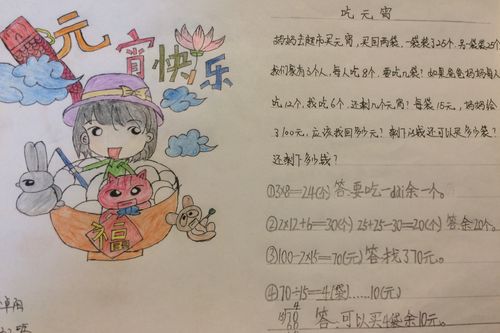 元宵快乐
福
吃元宵
妈妈去超市买元宵,买回两袋,一袋装了25个,另一袋装25个
我们家有3个人,每人吃8个,要吃几袋?如果爸爸妈妈每人
吃12个,我吃6个,还剩几个元宵?每袋15元,妈妈给
了100元,应该找回多少元?剩下的钱还可以买多少袋?
还剩下多少钱?
①3×8=24(个) 答:要吃一dai余一个。
②2×12+6=30(个) 25+25-30=20(个) 答:余20个。
③100-2×15=70(元) 答:找了70元。
④70÷15=4(袋)……10(元)
答:可以买4袋余10元。